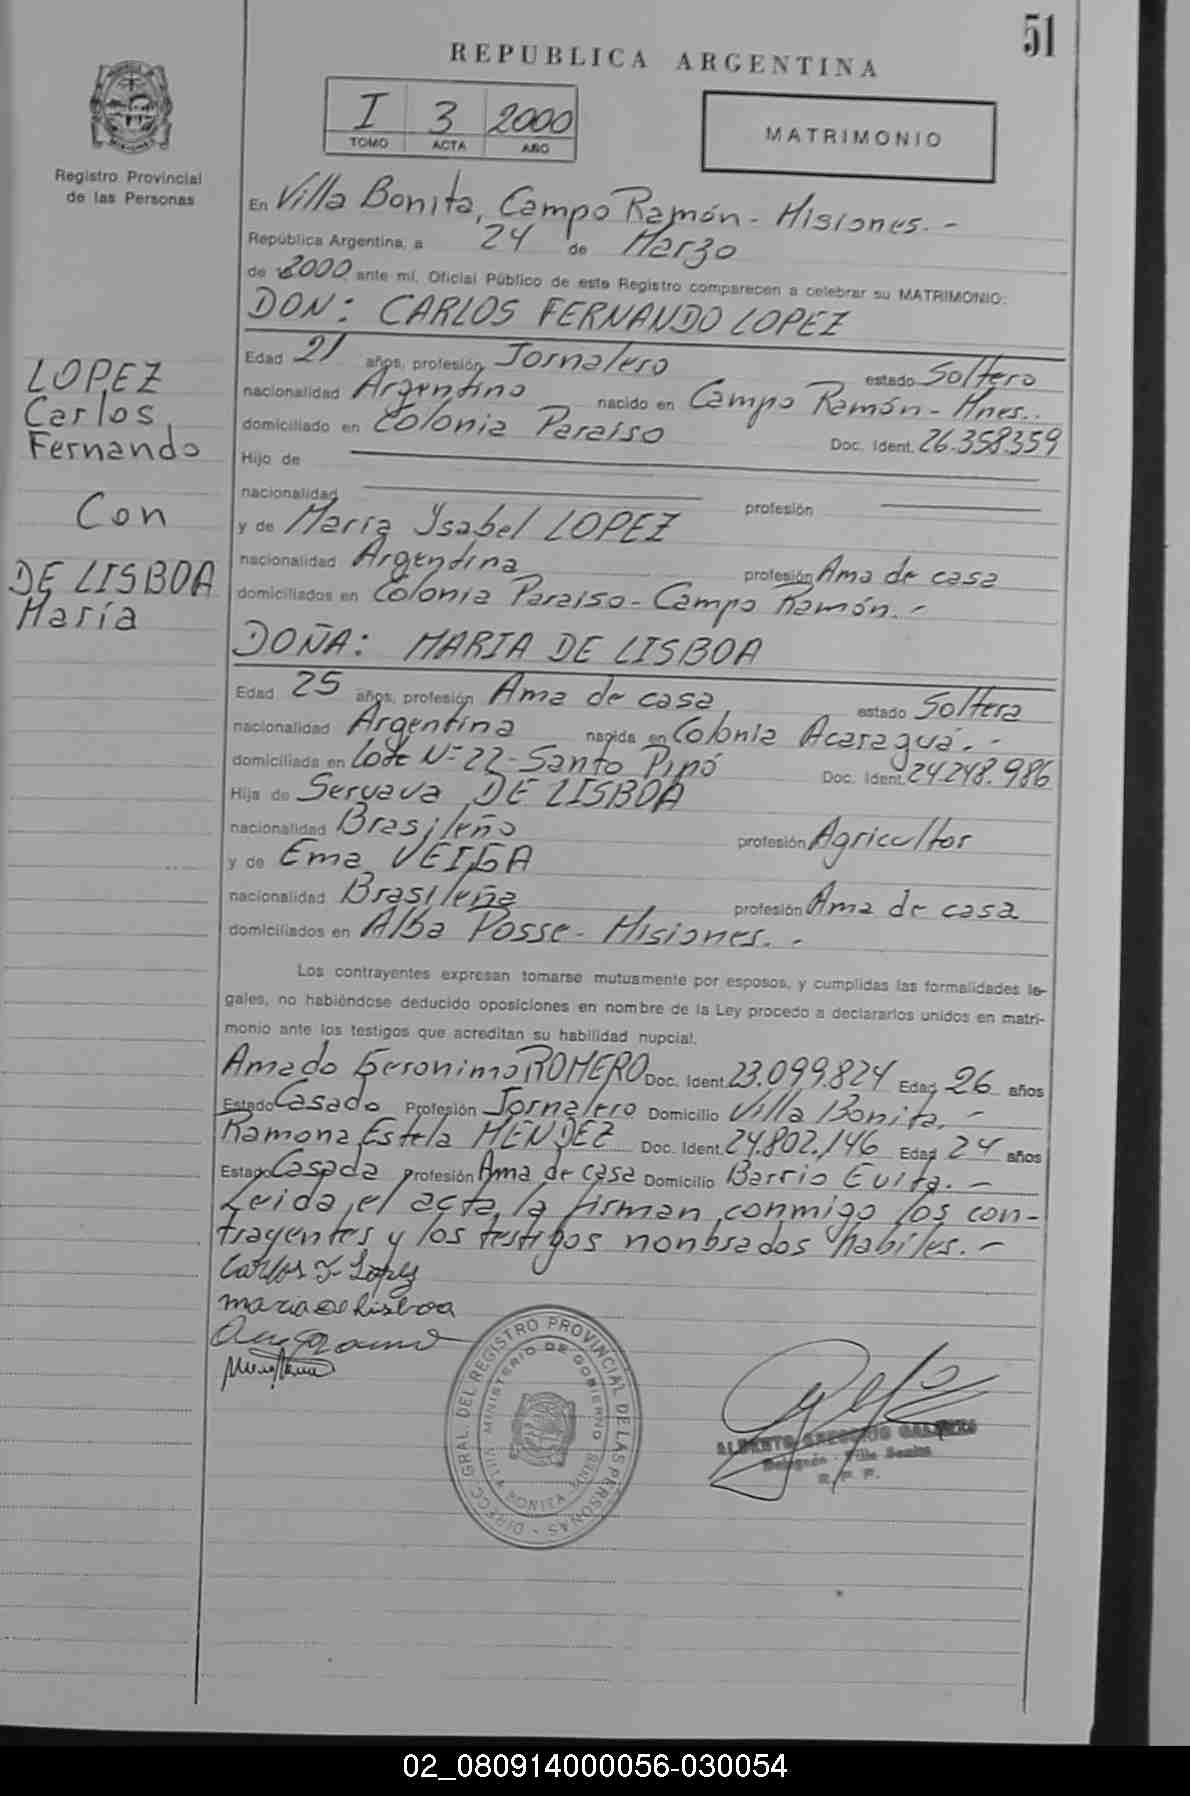 51
REPUBLICA ARGENTINA
I 3 2000
TOMO ACTA AÑO
MATRIMONIO
Registro Provincial
de las Personas
En Villa Bonita, Campo Ramón - Misiones. -
República Argentina, a 24 de Marzo
de 2000 ante mí, Oficial Público de este Registro comparecen a celebrar su MATRIMONIO:
DON: CARLOS FERNANDO LOPEZ
Edad 21 años, profesión Jornalero estado Soltero
nacionalidad Argentino nacido en Campo Ramón - Mnes..
domiciliado en Colonia Paraiso Doc. Ident. 26.358.359
Hijo de
nacionalidad profesión
y de María Ysabel LOPEZ
nacionalidad Argentina profesión Ama de casa
domiciliados en Colonia Paraiso - Campo Ramón. -
LOPEZ
Carlos
Fernando
Con
DE LISBOA
María
DOÑA: MARIA DE LISBOA
Edad 25 años, profesión Ama de casa estado Soltera
nacionalidad Argentina nacida en Colonia Acaragua. -
domiciliada en Lote Nº 22 - Santo Pipó Doc. Ident. 24.248.986
Hija de Servava DE LISBOA
nacionalidad Brasileño profesión Agricultor
y de Ema VEIGA
nacionalidad Brasileña profesión Ama de casa
domiciliados en Alba Posse - Misiones. -
Los contrayentes expresan tomarse mutuamente por esposos, y cumplidas las formalidades le-
gales, no habiéndose deducido oposiciones en nombre de la Ley procedo a declararlos unidos en matri-
monio ante los testigos que acreditan su habilidad nupcial.
Amado Geronimo ROMERO Doc. Ident. 23.099.824 Edad 26 años
Estado Casado Profesión Jornalero Domicilio Villa Bonita. -
Ramona Estela MENDEZ Doc. Ident. 24.802.146 Edad 24 años
Estado Casada Profesión Ama de casa Domicilio Barrio Evita. -
Leida el acta, la firman conmigo los con-
trayentes y los testigos nonbrados habiles. -
Carlos F Lopez
maria de Lisboa
DIRECC. GRAL. DEL REGISTRO PROVINCIAL DE LAS PERSONAS -
MINISTERIO DE GOBIERNO
VILLA BONITA
ALBERTO GREGORIO
Delegado - Villa Bonita
R. P. P.
02_080914000056-030054